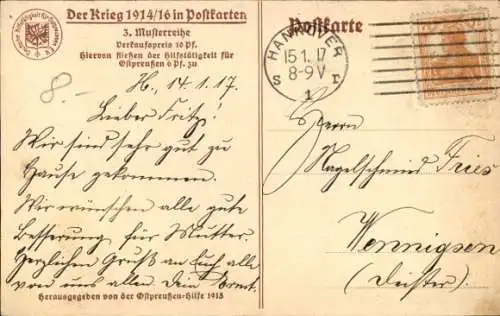 Der Krieg 1914/16 in Postkarten
3. Musterreihe
Verkaufspreis 10 Pf.
Hiervon fließen der Hilfstätigkeit für
Ostpreußen 6 Pf. zu
8.-
H., 14.1.17.
Lieber Fritz!
Wir sind sehr gut zu
Hause gekommen.
Wir wünschen alle gute
Besserung für Mutter.
Herzlichen Gruß an Euch alle
von uns allen. Dein Ernst.
Herausgegeben von der Ostpreußen-Hilfe 1915
Postkarte
HANNOVER
15.1.17
8-9V
S 1 r
Herrn
Nagelschmied Fries
Wennigsen
(Deister).